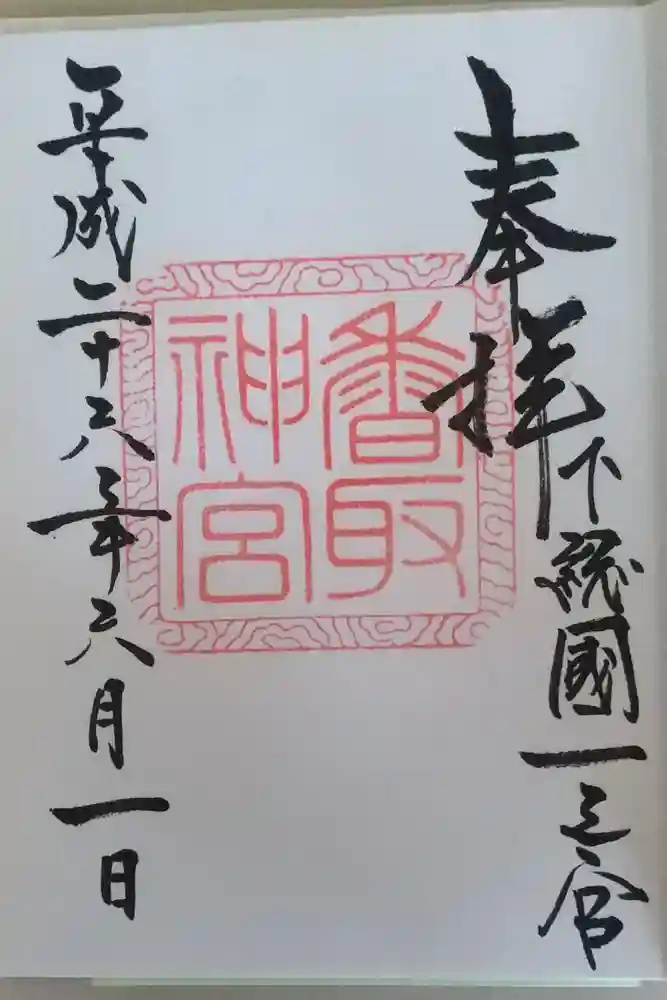 奉拝
下総國一之宮
香取
神宮
平成二十六年六月一日